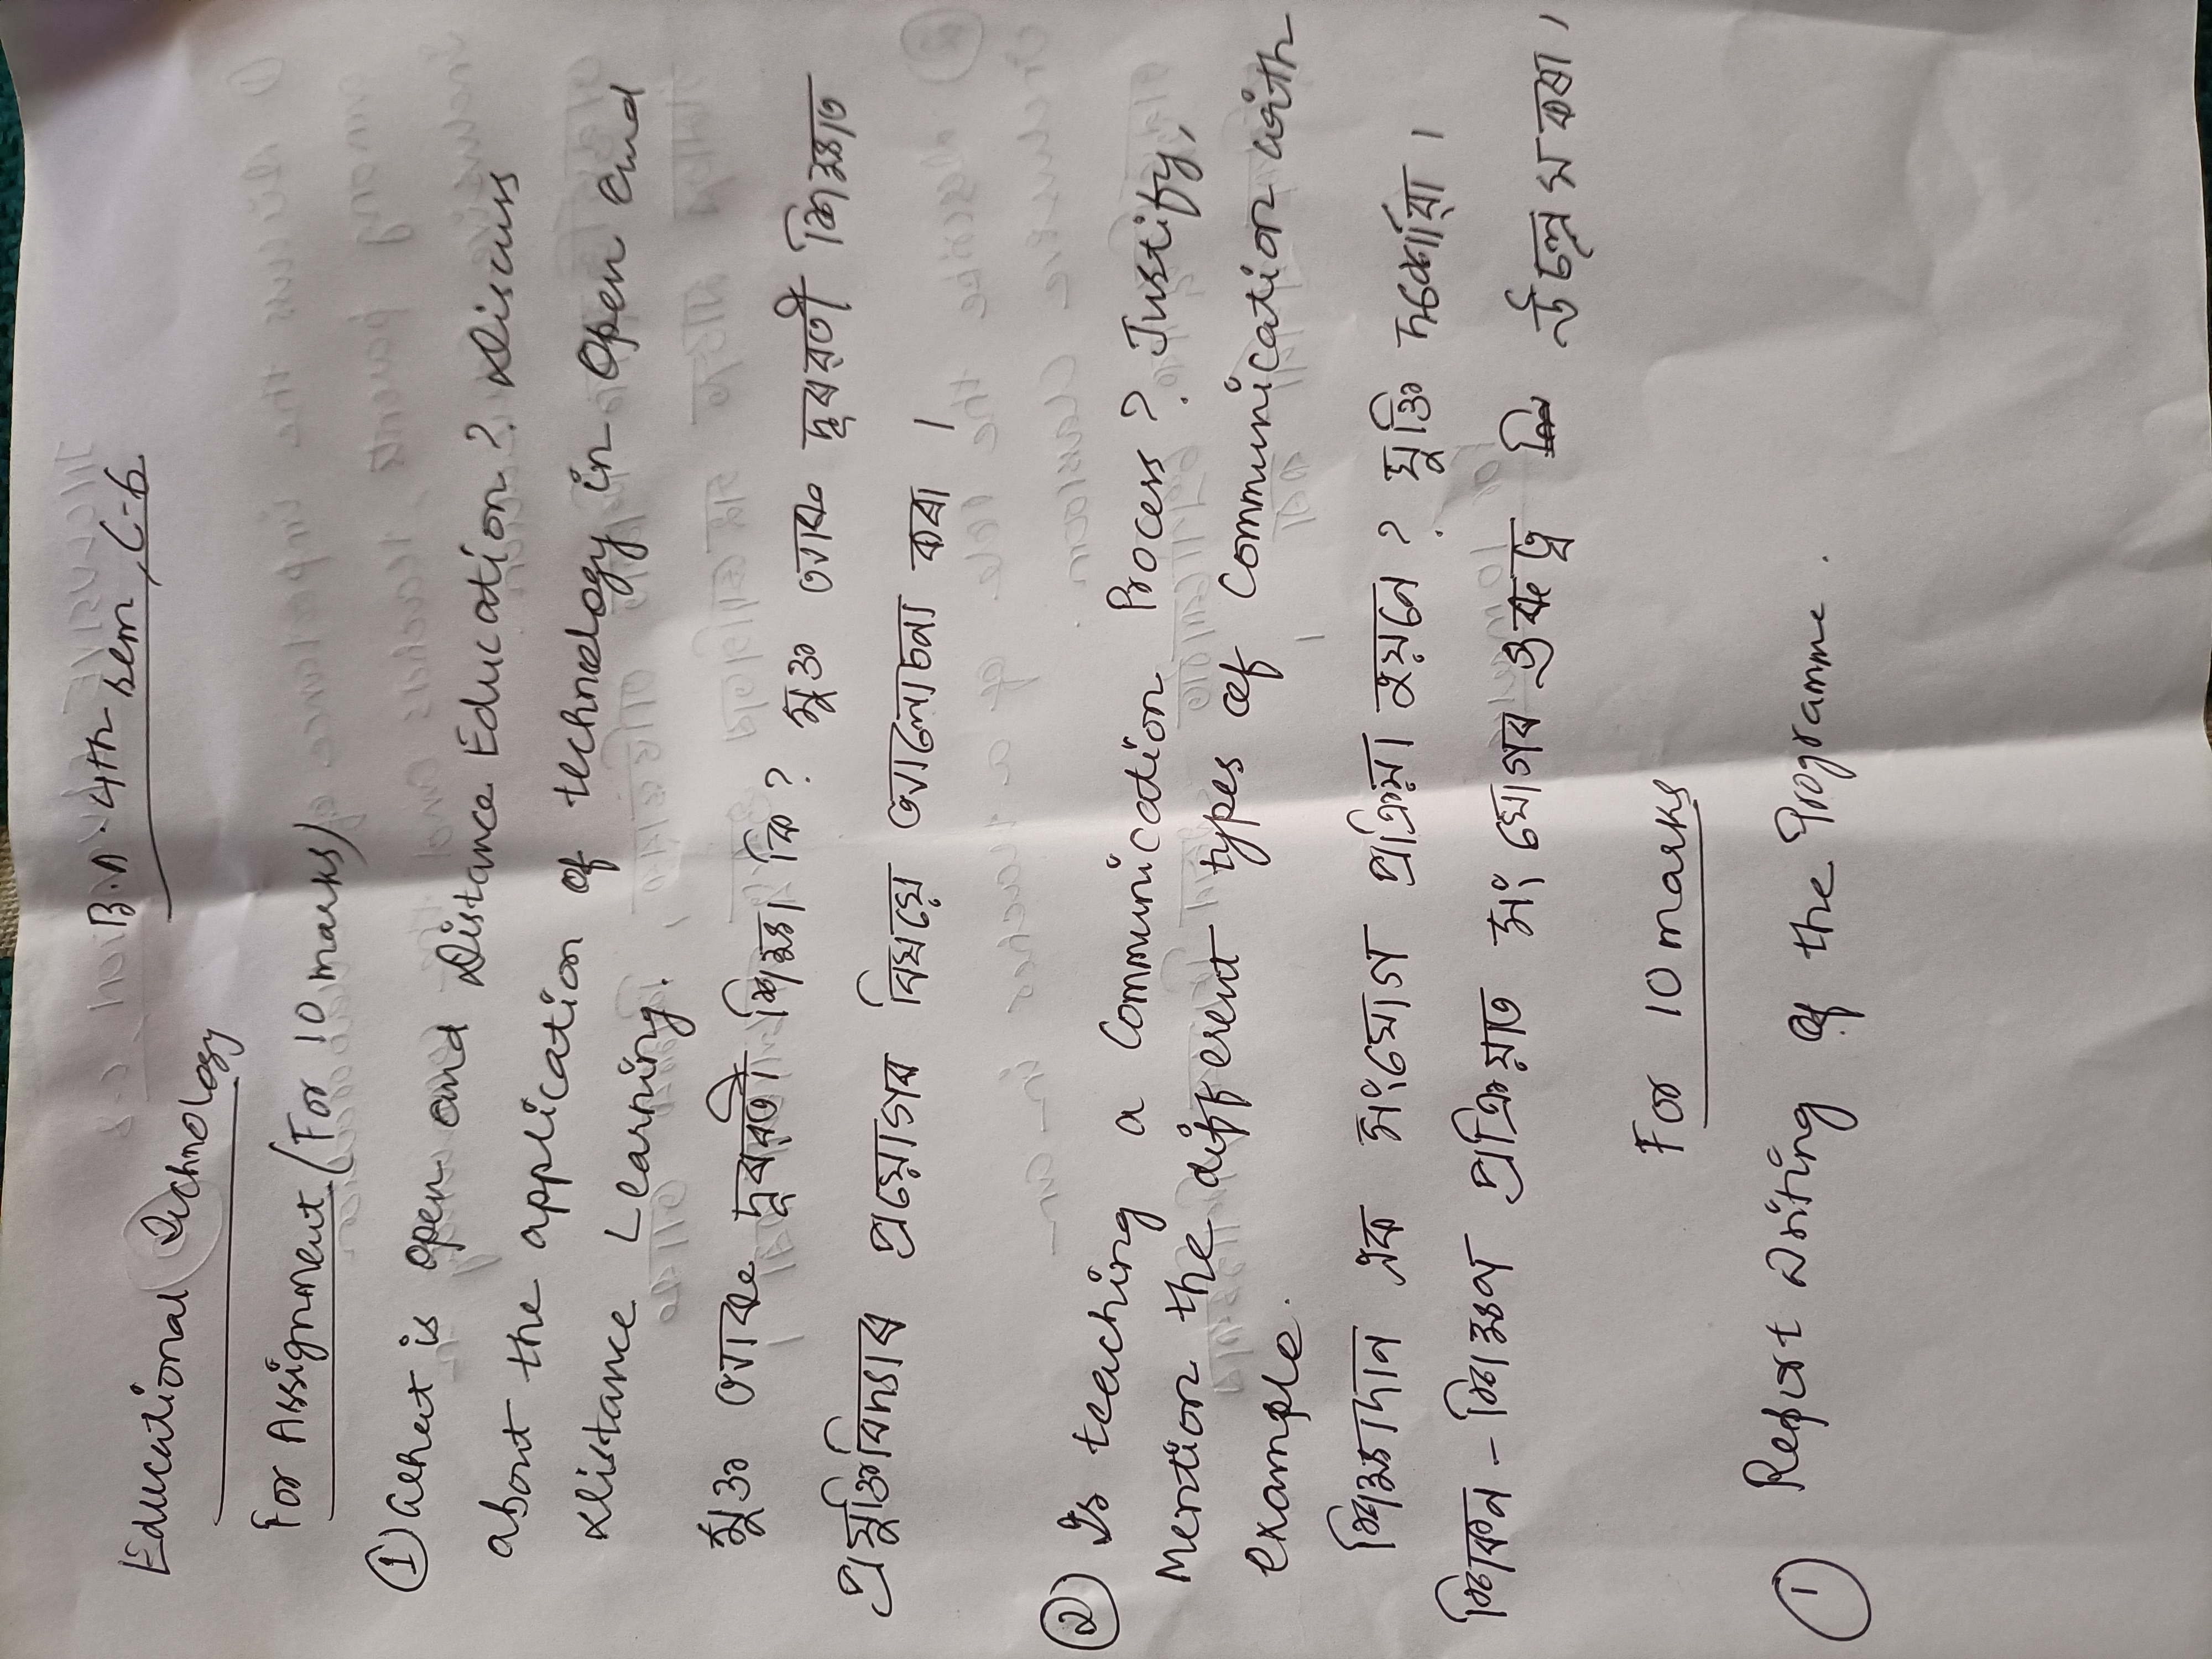 B.A. 4th sem, C-6
Educational Technology
For Assignment (For 10 marks)
① What is open and Distance Education? Discuss
about the application of technology in Open and
Distance Learning.
মুক্ত আৰু দূৰৱৰ্তী শিক্ষা কি? মুক্ত আৰু দূৰৱৰ্তী শিক্ষাত
প্ৰযুক্তিবিদ্যাৰ প্ৰয়োগৰ বিষয়ে আলোচনা কৰা।
② Is teaching a Communication Process? Justify,
Mention the different types of Communication with
example.
শিক্ষাদান এক সংযোগ প্ৰক্ৰিয়া হয়নে? যুক্তি দৰ্শোৱা।
শিকন - শিক্ষণ প্ৰক্ৰিয়াত সংযোগৰ গুৰুত্ব উল্লেখ কৰা।
For 10 marks
① Report Writing of the Programme.